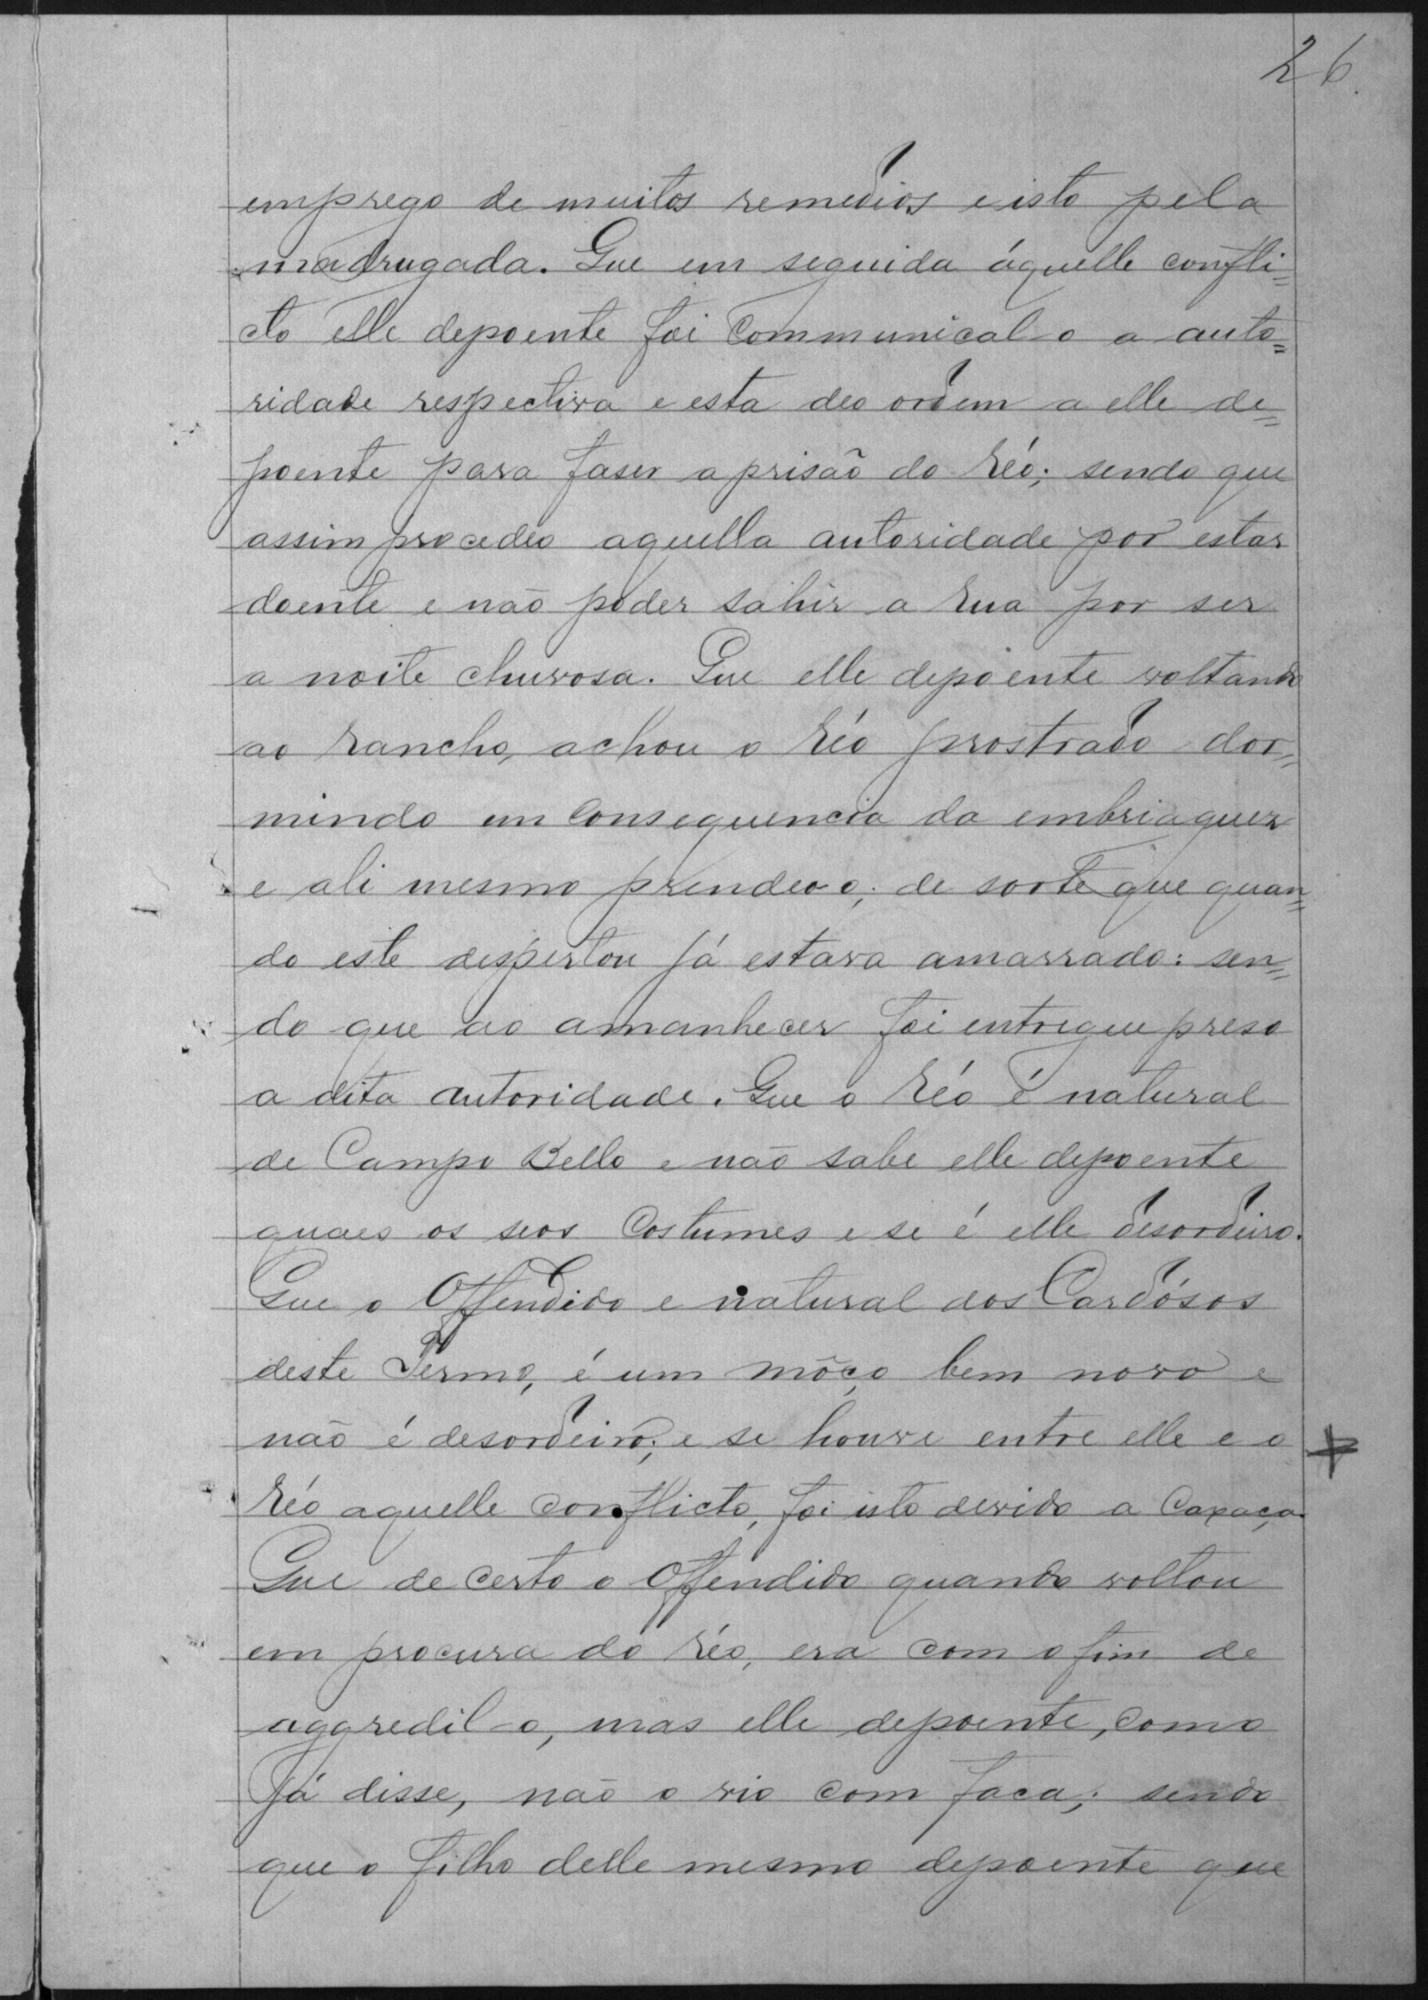 26.
emprego de muitos remedios e isto pela
madrugada. Que em seguida áquelle confli=
cto elle depoente foi communical-o a auto=
ridade respectiva e esta deo ordem a elle de=
poente para faser a prisão do Réo; sendo que
assim procedeo aquella autoridade por estar
doente e não poder sahir a rua por ser
a noite chuvosa. Que elle depoente voltando
ao rancho, achou o Réo prostrado dor=
mindo em consequencia da embriaguez
e ali mesmo prendeo-o; de sorte que quan=
do este despertou já estava amarrado: sen=
do que ao amanhecer foi entregue preso
a dita autoridade. Que o Réo é natural
de Campo Bello e não sabe elle depoente
quaes os seos costumes e se é elle desordeiro.
Que o Offendido e natural dos Cardósos
deste Termo, é um môço bem novo e
não é desordeiro; e se houve entre elle e o
Réo aquelle conflicto, foi isto devido a caxaça.
Que de certo o Offendido quando voltou
em procura do Réo, era com o fim de
aggredil-o, mas elle depoente, como
já disse, não o vio com faca; sendo
que o filho delle mesmo depoente que